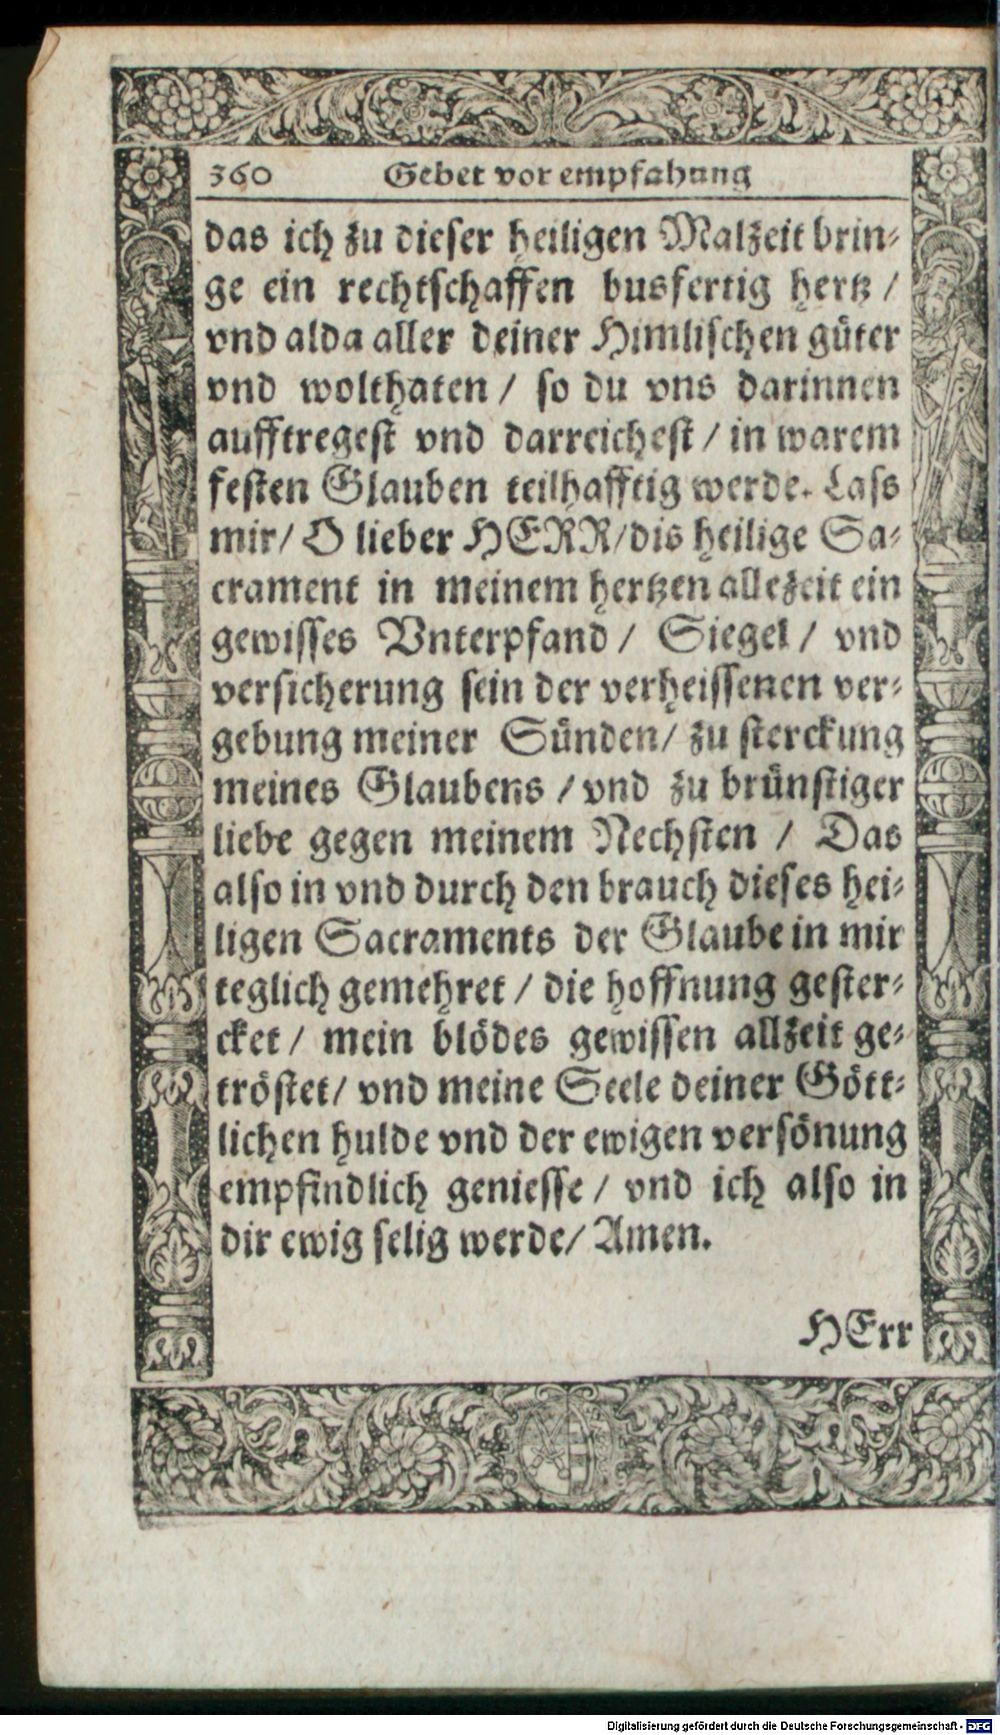 360 Gebet vor empfahung
das ich zu dieser heiligen Malzeit brin-
ge ein rechtschaffen busfertig hertz /
vnd alda aller deiner Himlischen güter
vnd wolthaten / so du vns darinnen
aufftregest vnd darreichest / in warem
festen Glauben teilhafftig werde. Lass
mir / O lieber HERR / dis heilige Sa-
crament in meinem hertzen allezeit ein
gewisses Vnterpfand / Siegel / vnd
versicherung sein der verheissenen ver-
gebung meiner Sünden / zu sterckung
meines Glaubens / vnd zu brünstiger
liebe gegen meinem Nechsten / Das
also in vnd durch den brauch dieses hei-
ligen Sacraments der Glaube in mir
teglich gemehret / die hoffnung gester-
cket / mein blödes gewissen allzeit ge-
tröstet / vnd meine Seele deiner Gött-
lichen hulde vnd der ewigen versönung
empfindlich geniesse / vnd ich also in
dir ewig selig werde / Amen.
HErr
Digitalisierung gefördert durch die Deutsche Forschungsgemeinschaft - DFG